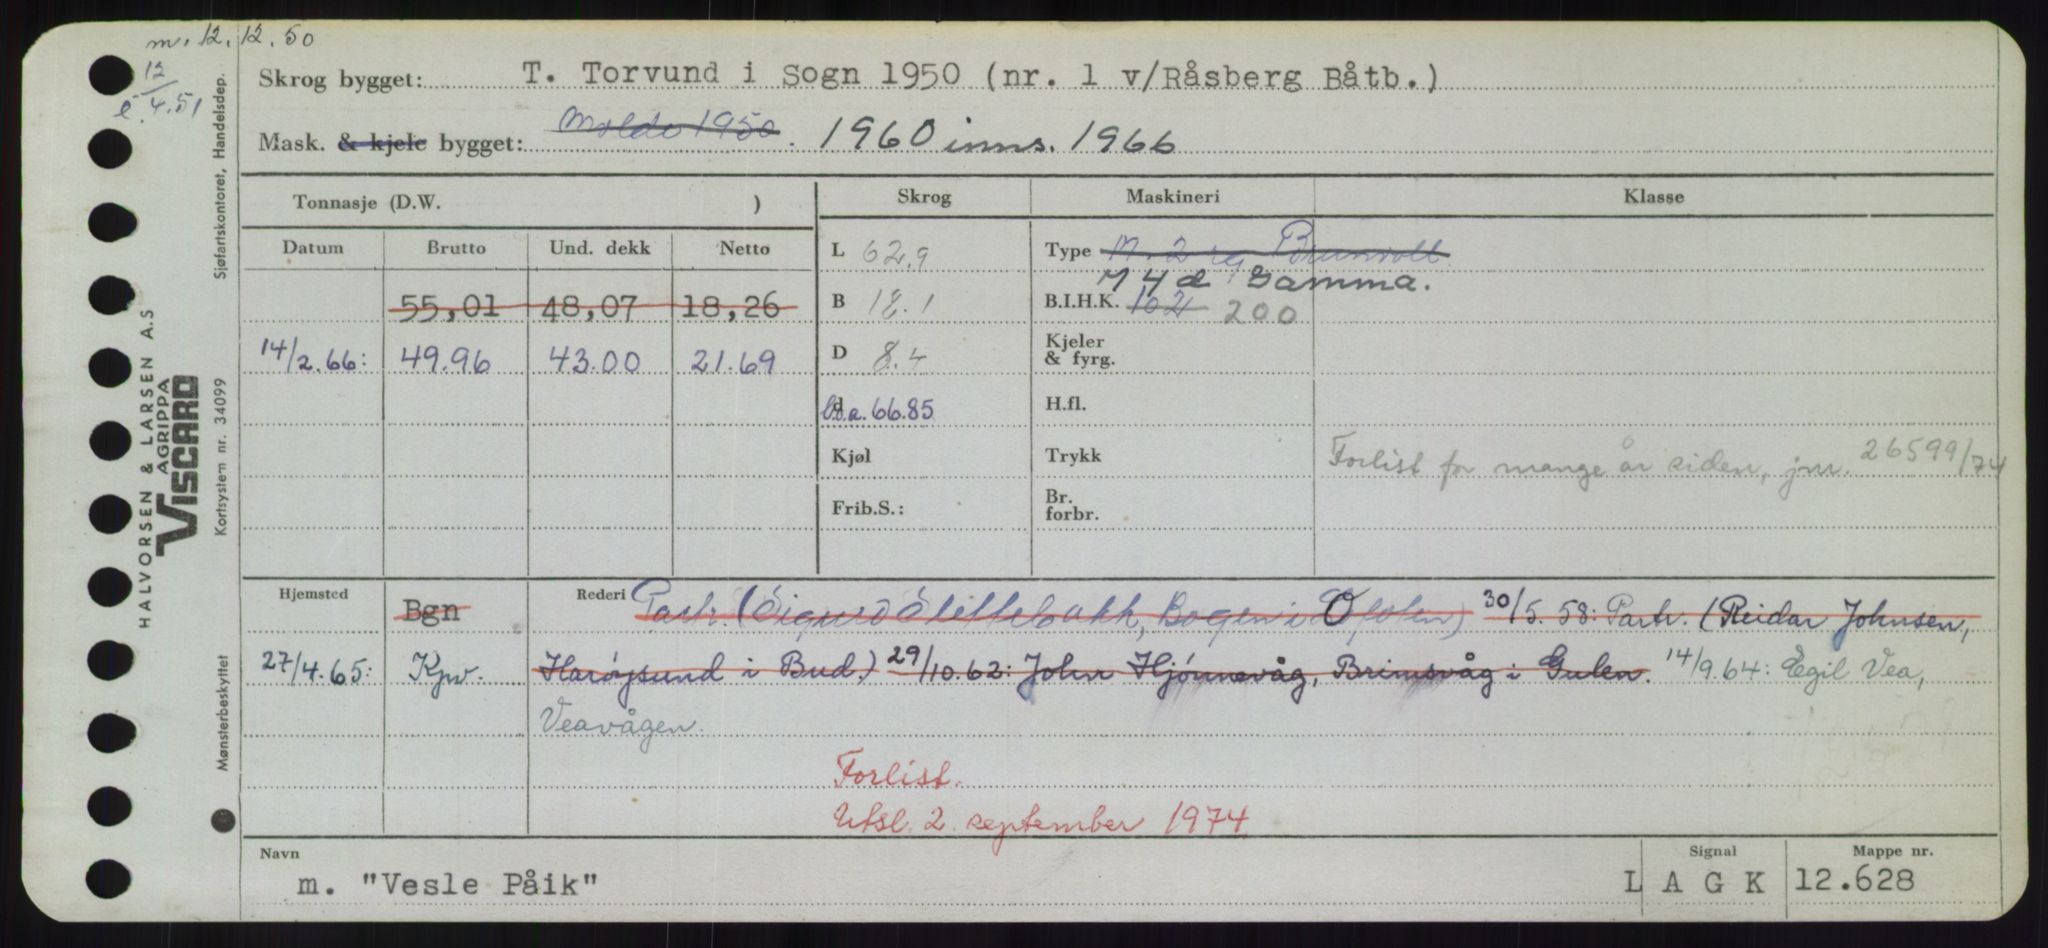 m. 12.12.50
12
e. 4.51
Skrog bygget: T. Torvund i Sogn 1950 (nr. 1 v/Råsberg Båtb.)
Mask. & kjele bygget: Molde 1950. 1960 inns. 1966
Tonnasje (D.W. )
Skrog Maskineri Klasse
Datum Brutto Und. dekk Netto
L 62.9 Type M. 2 sy Brunvoll
M 4 d Gamma.
55,01 48,07 18,26
B 18.1 B.I.H.K. 102 200
14/2.66: 49.96 43.00 21.69
D 8.4 Kjeler & fyrg.
d l.o.a. 66.85 H.fl.
Kjøl Trykk Forlist for mange år siden, jnr. 26599/74
Frib.S.: Br. forbr.
Hjemsted Bgn Rederi Partr. (Sigurd Slettebakk, Bogen i Ofoten) 30/5.58: Partr. (Reidar Johnsen,
27/4.65: Kpv. Harøysund i Bud.) 29/10.62: John Hjønnevåg, Brimsvåg i Gulen. 14/9.64: Egil Vea,
Veavågen.
Forlist.
Utsl. 2. september 1974
Navn Signal Mappe nr.
m. "Vesle Påik" L A G K 12.628
HALVORSEN & LARSEN A.S
AGRIPPA
VISCARD
Sjøfartskontoret, Handelsdep.
Kortsystem nr. 34099
Mønsterbeskyttet